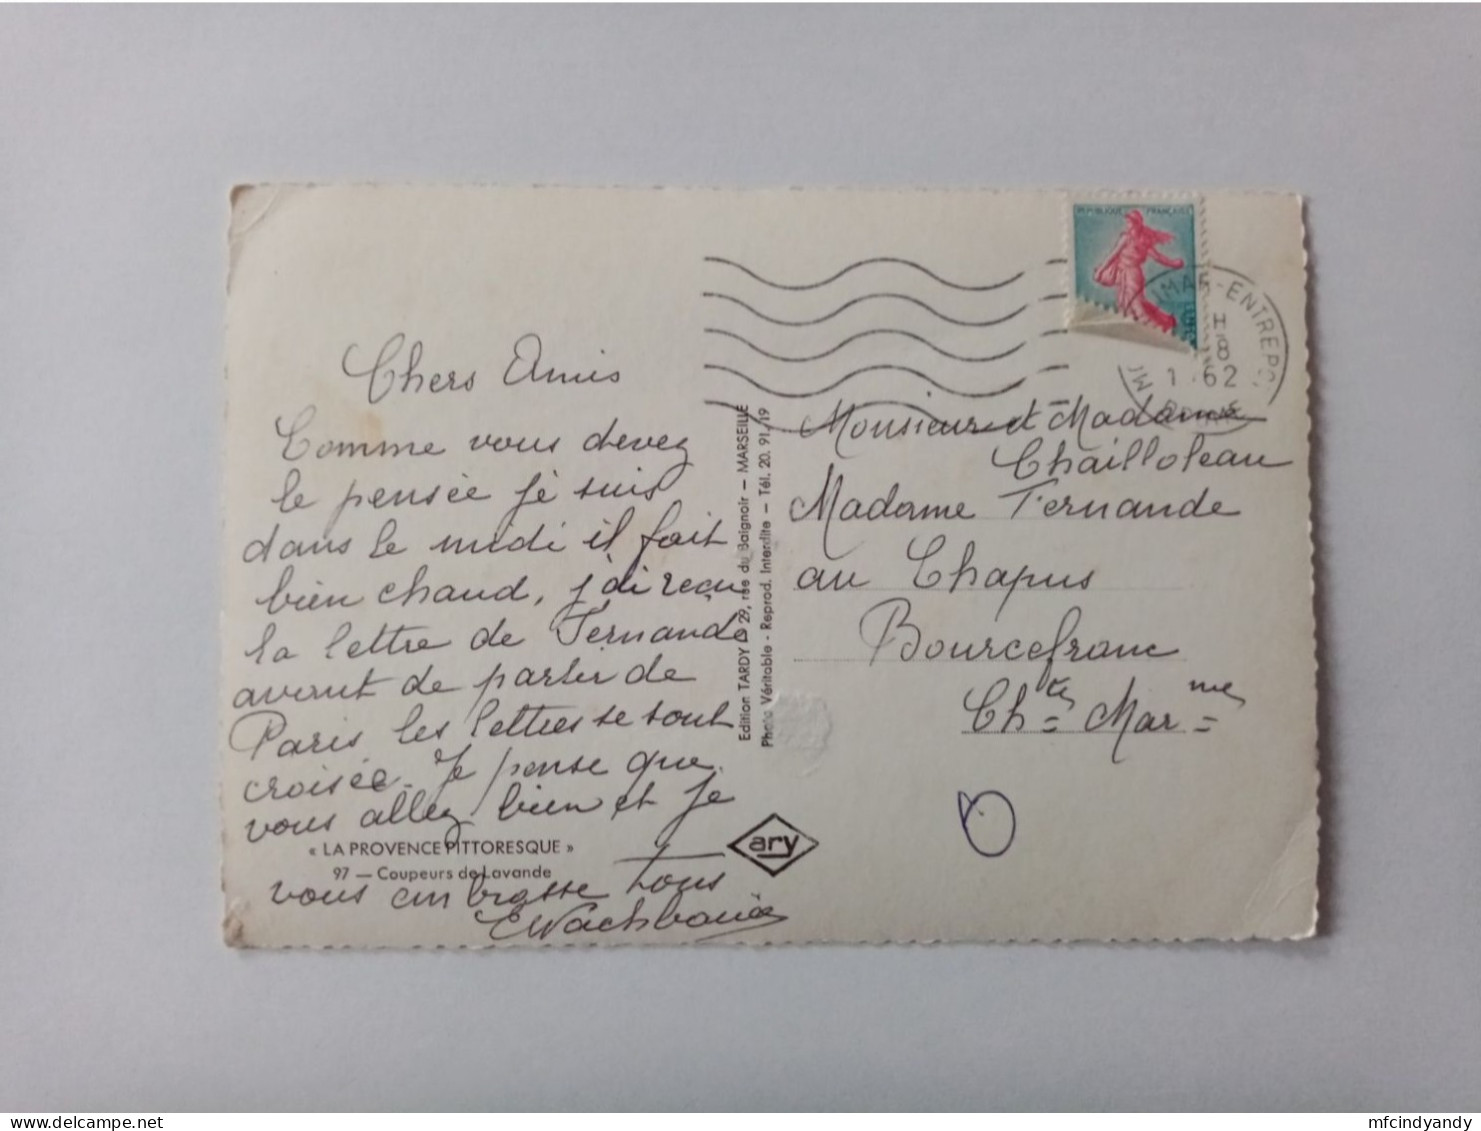 Chers Amis
Comme vous devez
le pensée je suis
dans le midi il fait
bien chaud, j'ai reçu
la lettre de Fernande
avant de partir de
Paris les lettres se sont
croisée. Je pense que
vous allez bien et je
vous embrasse tous
« LA PROVENCE PITTORESQUE »
97 — Coupeurs de Lavande
Edition TARDY 29, rue du Baignoir — MARSEILLE
Photo Véritable - Reprod. Interdite — Tél. 20. 91. 19
ary
REPUBLIQUE FRANÇAISE
ENTREPOT
8 H
1 . 62
Monsieur et Madame
Chailloleau
Madame Fernande
au Chapus
Bourcefranc
Ch te Mar me
mfcindyandy